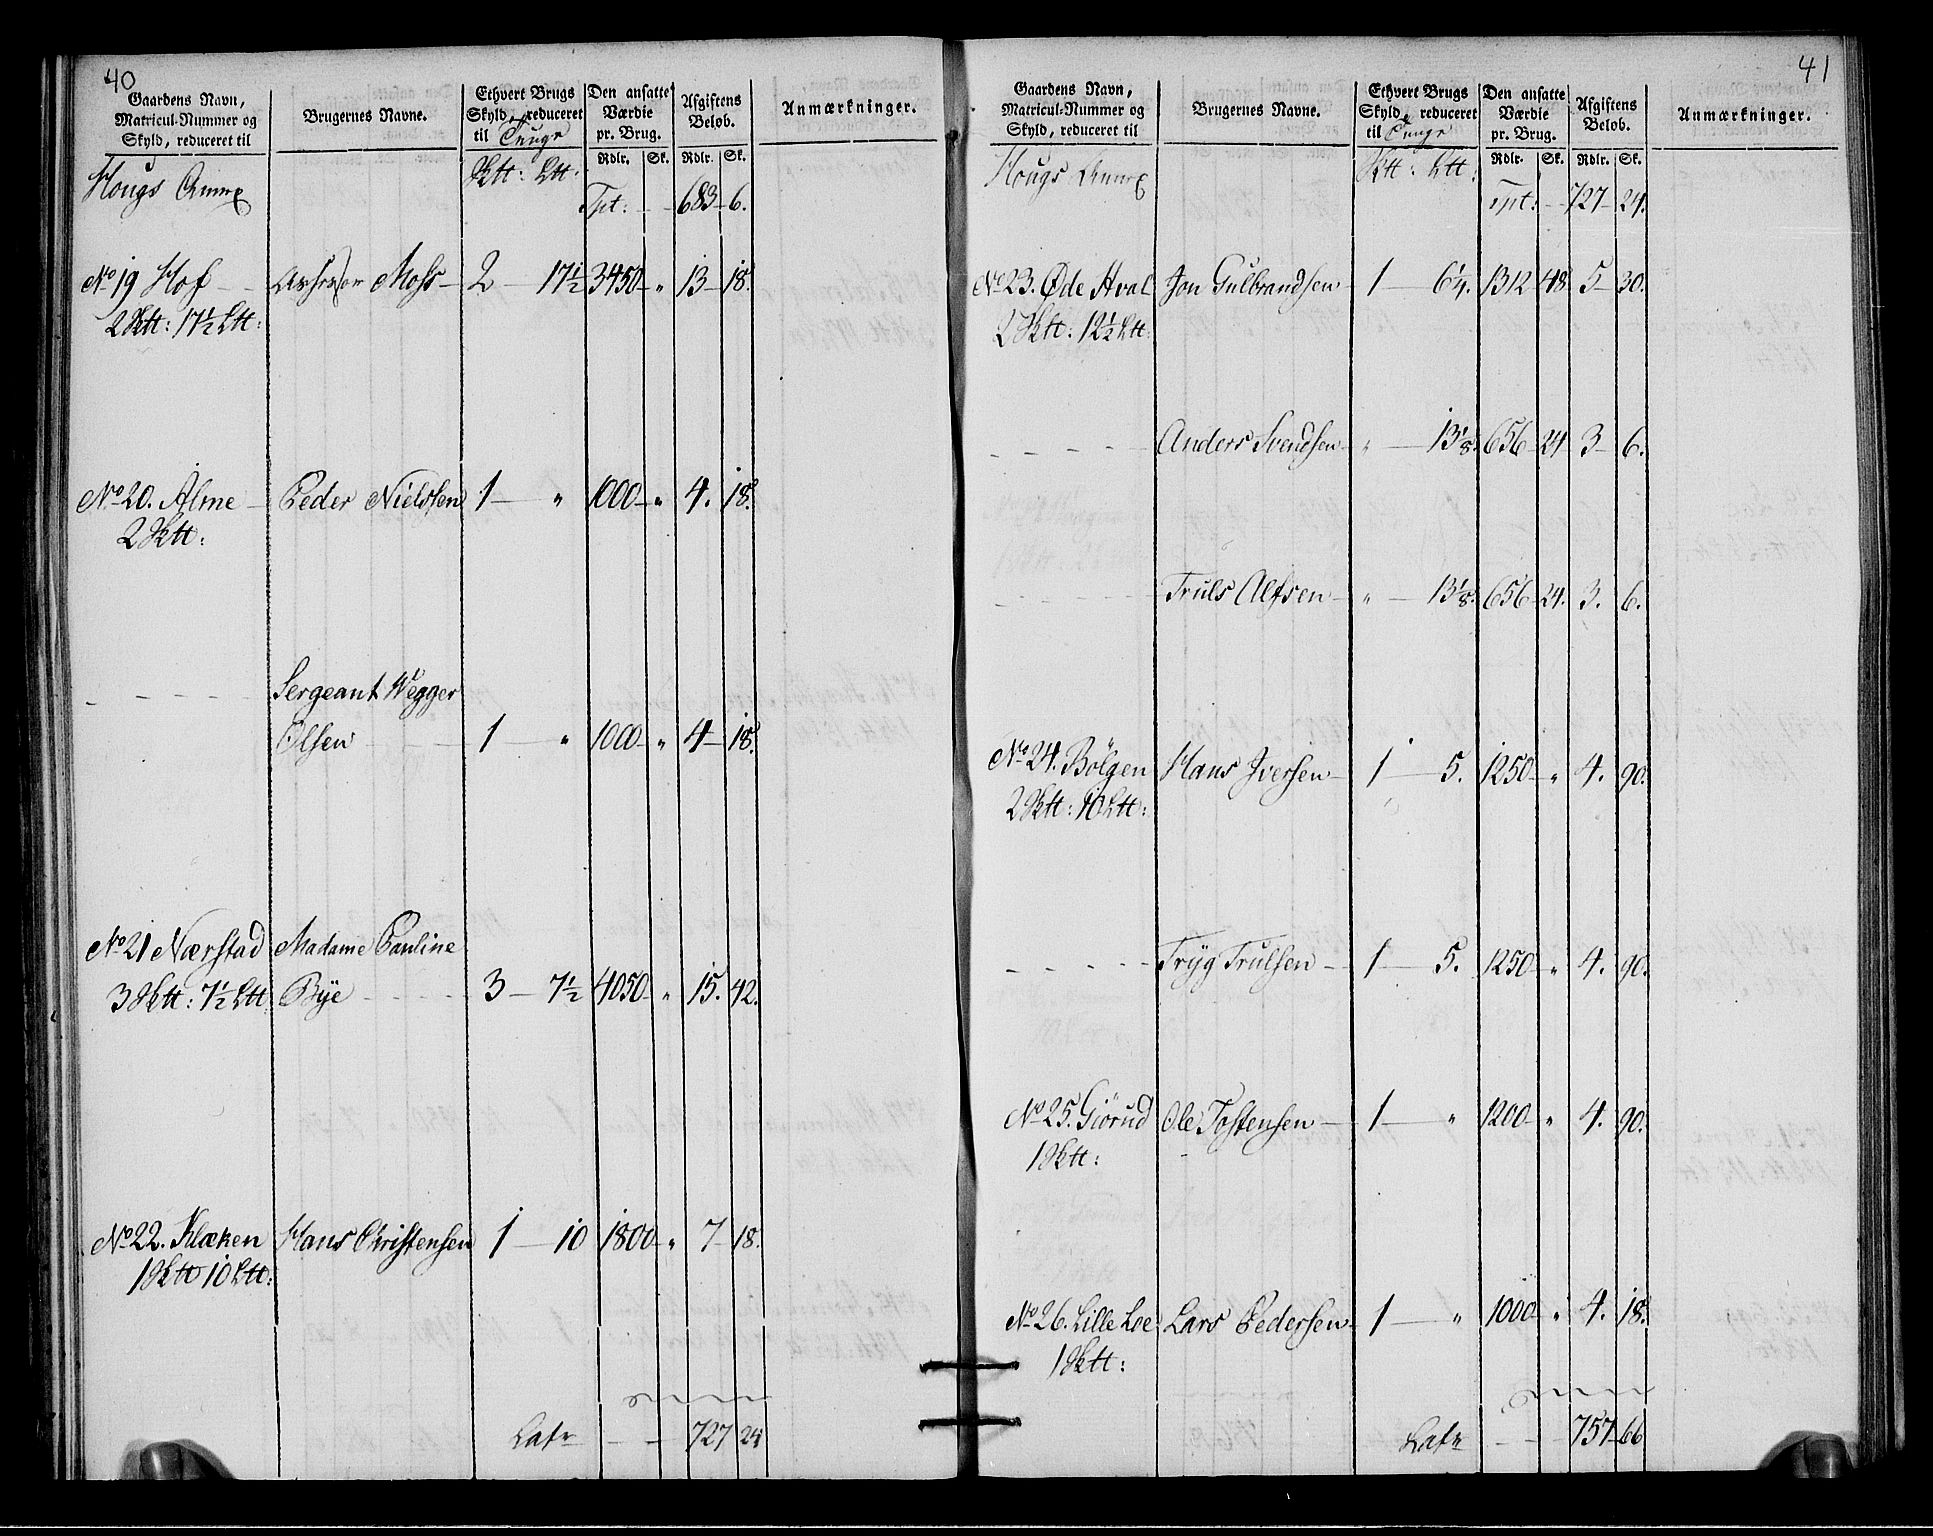 40
Gaardens Navn,
Matricul-Nummer og
Skyld, reduceret til
Brugernes Navne.
Ethvert Brugs
Skyld, reduceret
til Tunge
Den ansatte
Værdie
pr. Brug.
Rdlr. Sk.
Afgiftens
Beløb.
Rdlr. Sk.
Anmærkninger.
Hougs Annex
Sktt: Ltt:
Tpt: 683 6.
No 19 Hof Assessor Mohs 2 17½ 3450 " 13 18.
2 Sktt: 17½ Ltt:
No 20. Alme Peder Nielssen 1 " 1000 " 4. 18.
2 Sktt:
Sergeant Wegger
Olsen 1 " 1000 " 4 18.
No 21 Nærstad Madame Pauline
3 Sktt: 7½ Ltt Bÿe 3 7½ 4050 " 15. 42.
No 22. Klæken Hans Christensen 1 10 1800 " 7 18.
1 Sktt 10 Ltt:
Latr 727 24
41
Gaardens Navn,
Matricul-Nummer og
Skyld, reduceret til
Brugernes Navne.
Ethvert Brugs
Skyld, reduceret
til Tunge
Den ansatte
Værdie
pr. Brug.
Rdlr. Sk.
Afgiftens
Beløb.
Rdlr. Sk.
Anmærkninger.
Hougs Annex
Sktt: Ltt:
Tpt: 727 24.
No 23. Øde Hval Jon Gulbrandsen 1 6¼. 1312 48 5 30.
2 Sktt: 12½ Ltt:
Anders Svendsen " 13⅛. 656 24 3 6.
Truls Alfsen " 13⅛. 656 24. 3. 6.
No 24. Bölgen Hans Iversen 1 5. 1250 " 4. 90.
2 Sktt: 10 Ltt:
Trÿg Trulsen 1 5. 1250 " 4. 90.
No 25. Giörud Ole Tostensen 1 " 1200 " 4. 90.
1 Sktt:
No 26. Lille Loe Lars Pedersen 1 " 1000 " 4. 18.
1 Sktt:
Latr 757 66